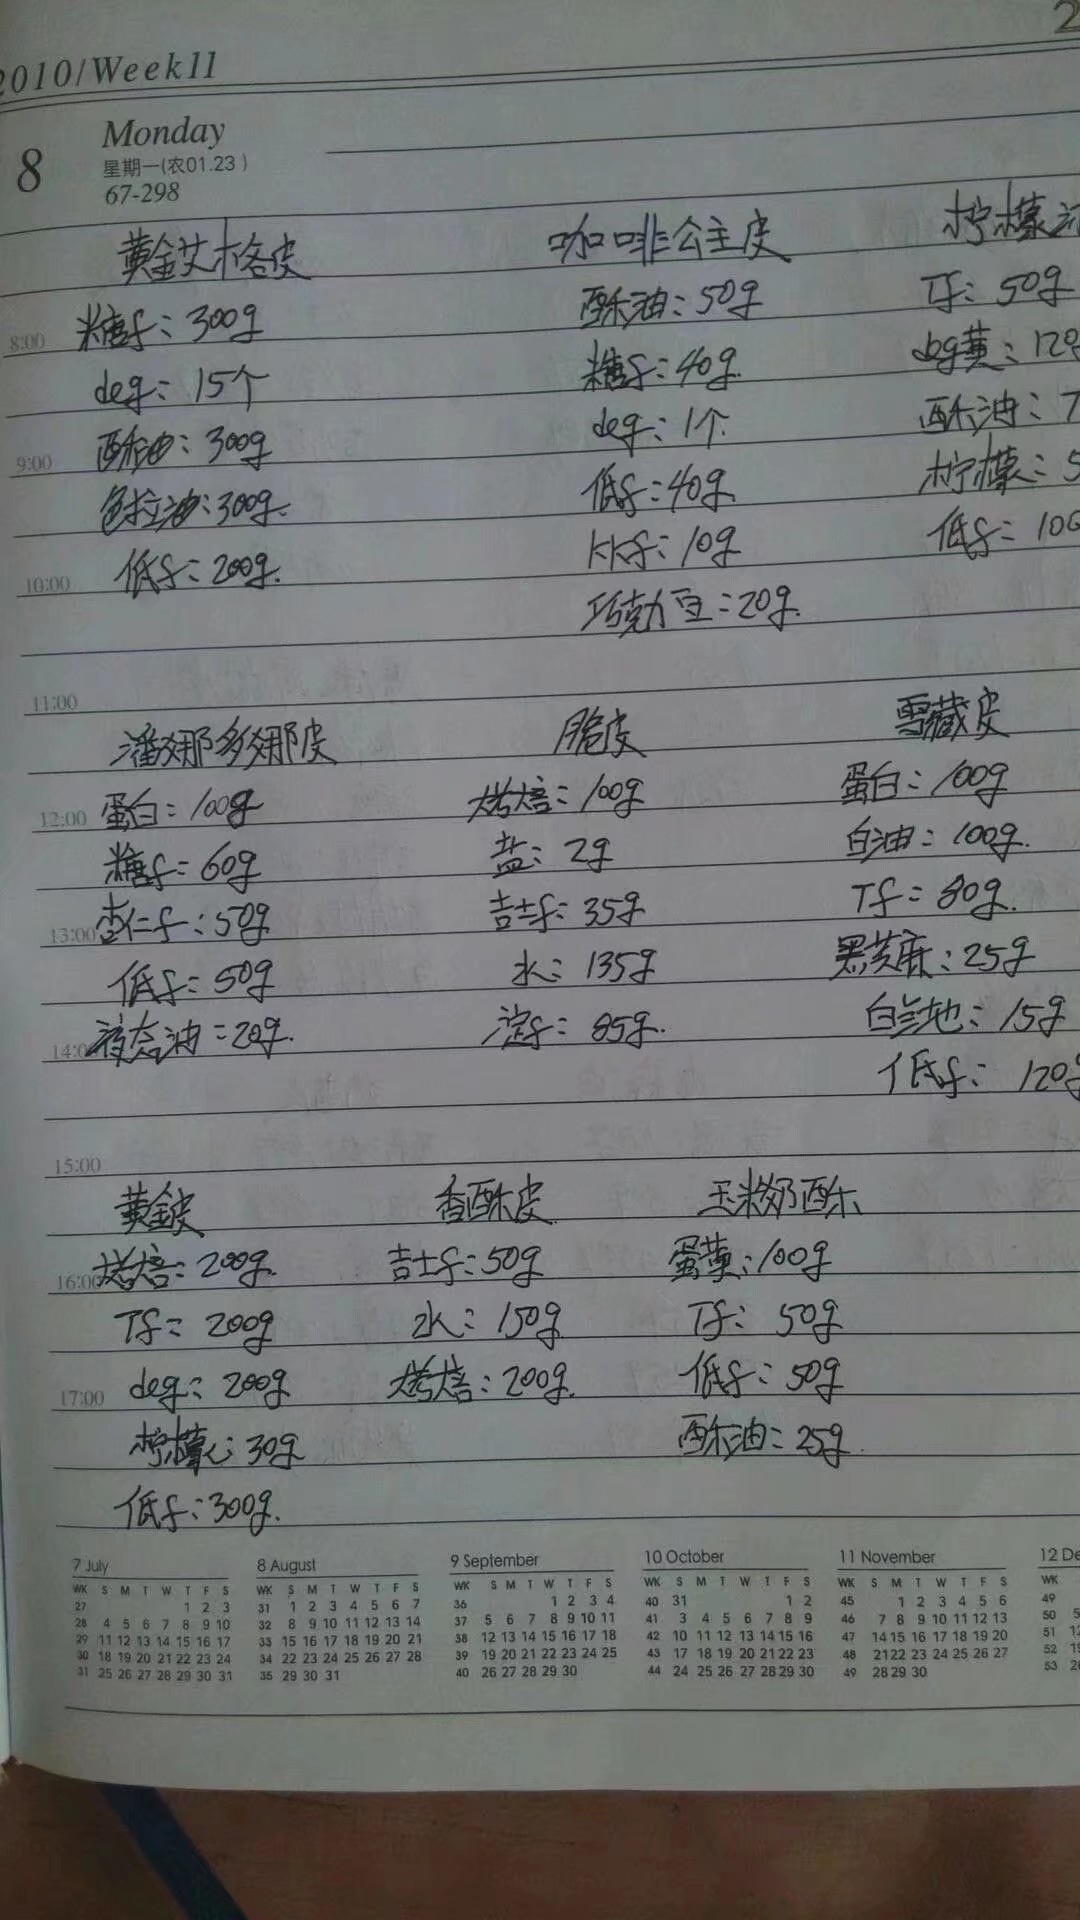 2010/Week11
2
8
Monday
星期一(农01.23)
67-298
黄金艾格皮
糖f：300g
deg：15个
酥油：300g
色拉油：300g.
低f：200g.
咖啡公主皮
酥油：50g
糖f：40g.
deg：1个.
低f：40g.
kkf：10g
巧克力豆：20g.
柠檬
Tf：50g
deg黄：120
酥油：7
柠檬：5
低f：100
潘娜多娜皮
蛋白：100g
糖f：60g
杏仁f：50g
低f：50g
液态油：20g.
脆皮
烤焙：100g
盐：2g
吉士f：35g
水：135g
淀f：85g.
雪藏皮
蛋白：100g
白油：100g.
Tf：80g.
黑芝麻：25g
白兰地：15g
低f：120g
黄金皮
烤焙：200g.
Tf：200g
deg：200g
柠檬：30g
低f：300g.
香酥皮
吉士f：50g
水：150g
烤焙：200g.
玉米奶酥
蛋黄：100g
Tf：50g
低f：50g
酥油：25g
8:00
9:00
10:00
11:00
12:00
13:00
14:00
15:00
16:00
17:00
7 July
WK S M T W T F S
27 1 2 3
28 4 5 6 7 8 9 10
29 11 12 13 14 15 16 17
30 18 19 20 21 22 23 24
31 25 26 27 28 29 30 31
8 August
WK S M T W T F S
31 1 2 3 4 5 6 7
32 8 9 10 11 12 13 14
33 15 16 17 18 19 20 21
34 22 23 24 25 26 27 28
35 29 30 31
9 September
WK S M T W T F S
36 1 2 3 4
37 5 6 7 8 9 10 11
38 12 13 14 15 16 17 18
39 19 20 21 22 23 24 25
40 26 27 28 29 30
10 October
WK S M T W T F S
40 31 1 2
41 3 4 5 6 7 8 9
42 10 11 12 13 14 15 16
43 17 18 19 20 21 22 23
44 24 25 26 27 28 29 30
11 November
WK S M T W T F S
45 1 2 3 4 5 6
46 7 8 9 10 11 12 13
47 14 15 16 17 18 19 20
48 21 22 23 24 25 26 27
49 28 29 30
12 De
WK
49
50
51
52
53